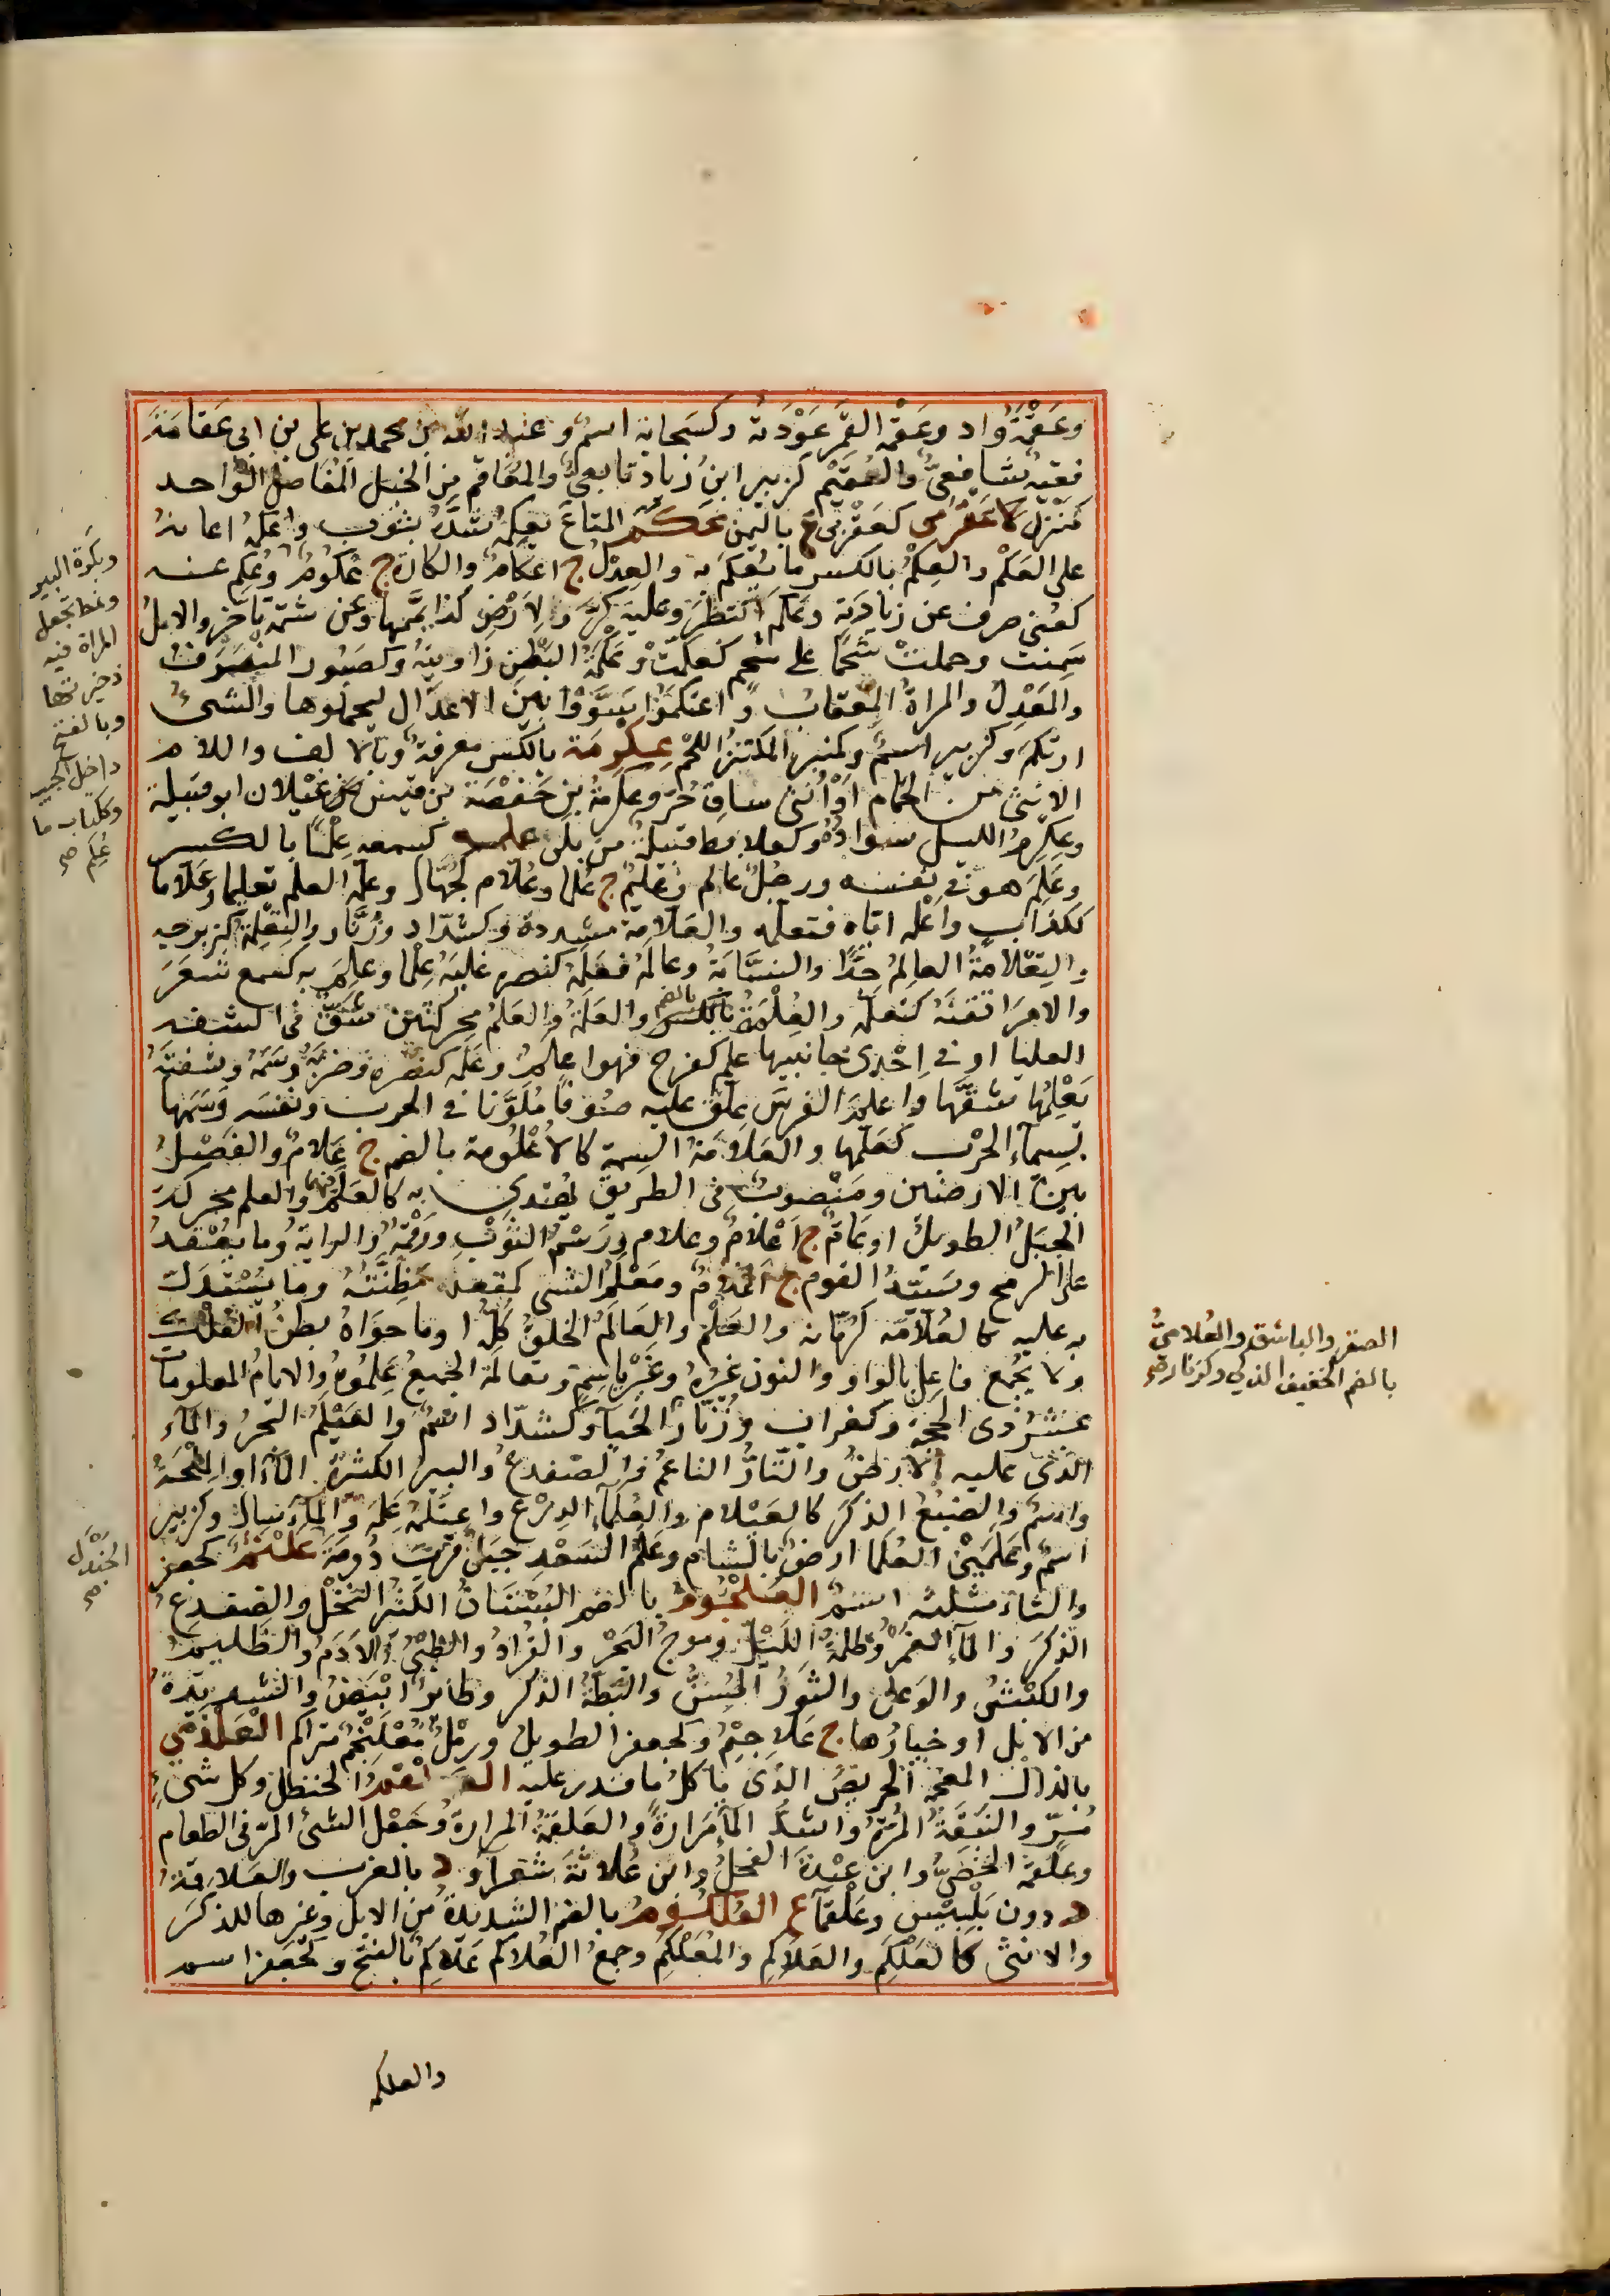 وعَقْمَةُ واد وعَقْمة القمر عَوْدَته وكسَحابة اسم وعبد الله بن محمد بن على بن ابى عَقامَةَ
فقيه شافعىّ والعُقَيْم كزبير ابنُ زياد تابعىّ والمَعَاقم من الخيل المَفاصل الواحد
كمنزل كاعَقْرَمى كعَقْرَبى ع باليمن عَكَمَ المتاعَ يعكِمُه شدَّه بثوب واَعْكَمَه اعانه
على العَكْم والعِكْمُ بالكسر ما يُعكَم به والعِدْلُ ج اعكامٌ والكارة ج عُكُومٌ وعُكِم عنه
كعُنى صرف عن زيارته وعَكَم انتظر وعليه كرَّ ولاَرْضِ كذا يمَّمها وعن شتمه تأخر والابلُ
سَمِنت وحملتْ شَحْمًا على شحم كعكمتْ وعَكْمَةُ البَطْنِ زاويتهُ وكصَبُور المنْصَرَفُ
والمَعْدِلُ والمراةُ المِعقابُ واعتكمُوا سَوَّوْا بين الاعدَال ليحملوها والشىءُ
ارتكم وكزبير اسمٌ وكمنبر المكتنزُ اللحْم عِكْرِمَة بالكسر معرفةً وبالالف واللام
الانثى من الحَمام اوْ اُنثى ساق حُرّ وعكرمةُ بن خَصَفَةَ بن قيس بن عَيْلان ابو قبيلة
وعِكْرِمُ الليل سوادُهُ وكعلابط قبيلةٌ من بلى علمه كسمعه عِلْمًا بالكسر
وعَلِمَ هو فى نفسه ورجُلٌ عالم وعَليمٌ ج عُلَما وعُلّام كجُهّال وعلّمه العلم تعليما وعِلّاما
ككذّاب واَعْلمه اياه فتعلمه والعَلّامة مشددة وكشدّاد وزُنّار والتِعْلِمَة كزبرجه
والتِعْلامَةُ العالِمُ جِدًّا والنسّابةُ وعالَمه فعَلَمَهُ كنصره غلبَهُ عِلْما وعلِمَ به كسمع شعَرَ
والامرَ اتقنَهُ كتعلّمه والعُلْمَةُ بالضم والعَلَمةُ والعَلَمُ محركتين شَقّ فى الشفه
العليا او فى اِحْدى جانبيها علم كفرح فهوا علمُ وعَلَمه كنصره وضربه وسَمَهُ وشفتَهُ
يَعْلِمُها شقّها واعلمَ الفرسَ علّق عليه صُوفًا مُلَوَّنا فى الحرب ونفسَه وَسَمَها
بسِيماءِ الحرْب كعَلّمها والعَلامَةُ السِمة كالاُعْلُومة بالضم ج عَلامٌ والفَصْلُ
بين الارضَين ومَنْصوبٌ فى الطريق يُهتدى به كالعَلَمِ فيهما والعلم محركةً
الجبَلُ الطويلُ اوعَامٌّ ج اَعْلامٌ وعِلام ورَسْمُ الثوْبِ ورَقْمُه والرايةُ وما يُعْقَدُ
على الرمح وسَيّدُ القوم ج اَعْلامٌ ومَعْلَمُ الشى كمقعد مَظِنَّتُهُ وما يُسْتدَلّ
به عليه كالعُلّامه كرُمّانه والعَلْم والعَالَمُ الخلقُ كلّه او ما حوَاهُ بطنُ الفَلَك
ولا يُجْمع فاعِل بالواو والنون غيْرهُ وغيْر ياسِمٍ وتعالمَهُ الجميعُ عَلِمُوهُ والايامُ المعلومات
عشرُ ذى الحجّة وكغراب وزُنّار الحنّاء وكشدّاد اسْمٌ والعَيْلَمُ البَحرُ والماء
الذى عليه الاَرضُ والتارُّ الناعمُ والضفدعُ والبير الكثيرةُ الماءِ او المِلْحَةُ
واسمٌ والضبعُ الذكرَ كالعَيْلام والعُلماءُ الدِرْع واعتلمه عَلِمَه والماءُ سال وكزبير
اسمٌ وعلَمَيْن العُلما ارضٌ بالشام وعَلَمُ السَعْد جبَلٌ قربَ دُومَةَ عَلْثَمٌ كجعفر
والثاءُ مثلثه اسمٌ العُلْجُومُ بالضم البُسْتَانُ الكثيرُ النخْل والضفدعُ
الذكرَ والماء الغمْرُ وظلمةُ اللَيْل وموجُ البَحْر والقُرادُ والظبْىُ الآدَمُ والظَليمُ
والكبْشُ والوَعلُ والثوْرُ المُسِنُّ والبَطّةُ الذكر وطائرٌ ابْيَضُ والشديدةُ
من الابل او خيارُها ج عَلاجِيْمُ وكجعفر الطويلُ ورمْلٌ مُعْلَنْجِمٌ متراكم العَلْذَمِىّ
بالذال المعجمة الحريصُ الذى ياكل ما قدر عليه العلقمُ الحنظلُ وكل شىءٍ
مُرٍّ والنَبَقةُ المُرّةُ واشدّ الماء مَرارةً والعَلقَمةُ المرارةُ وجَعْل الشىء المرّ فى الطعام
وعلقمة الخَصِىُّ وابن عَبْدَةَ الفحلُ وابن عُلاثَةَ شُعَراءُ ود بالغرب والعَلاقِمةُ
د دون بَلْبَيْس وعَلْقَمَاءُ ع العُلْكُومُ بالضم الشديدةُ من الابل وغيرها للذكرَ
والانثى كالعَلْكَمِ والعَلاكِم والمُعَلْكَم وجمعُ العُلاكم عَلاكِمُ بالفتح وكجعفر اسم
والعلكمة
وبَكَرة البير
ونمَط تجعل
المراة فيه
ذخيرتها
وبالفتح
داخل الجنب
وككتاب ما
عُكِم به صح
الصقر والباشق والعُلامىّ
بالضم الخفيف الذكى وكزنار صح
الجَنْدَل
صح